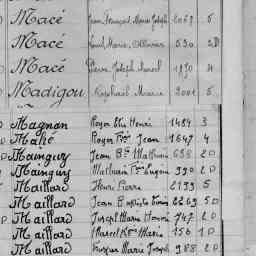 Macé Jean François Marie Joseph 2069 5
Macé Marie, Ollivier 530 2D
Macé Pierre Joseph Marcel 1890 4
Madigou Raphaël Marie 2001 5
Magnan Roger Elie Henri 1484 3
Mahé Roger Fois Jean 1647 4
Mainguy Jean Bte Mathurin 658 2D
Mainguy Mathurin Eugène 390 2D
Maillard Henri Pierre 2199 5
Maillard Jean Baptiste 2269 5D
Maillard Joseph Marie Honoré 747 2D
Maillard Marcel Marie 156 1D
Maillard Marie Joseph 988 2D